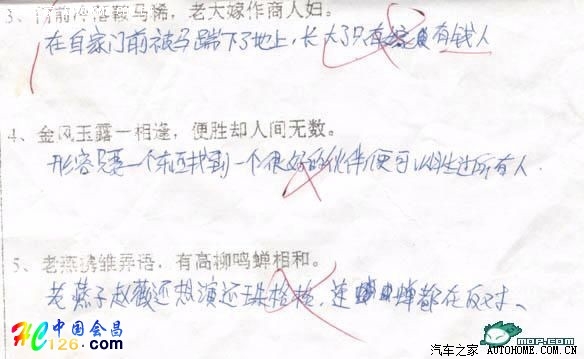 3、门前冷落鞍马稀，老大嫁作商人妇。
在自家门前被马踹下了地上，长大了只有嫁有钱人
4、金风玉露一相逢，便胜却人间无数。
形容只要一个东西找到一个很好的伙伴便可以胜过所有人.
5、老燕携雏弄语，有高柳鸣蝉相和。
老燕子赵薇还想演还珠格格，连蝉都在反对、
HC 中国会昌
126.com
mop.com
汽车之家 AUTOHOME.COM.CN